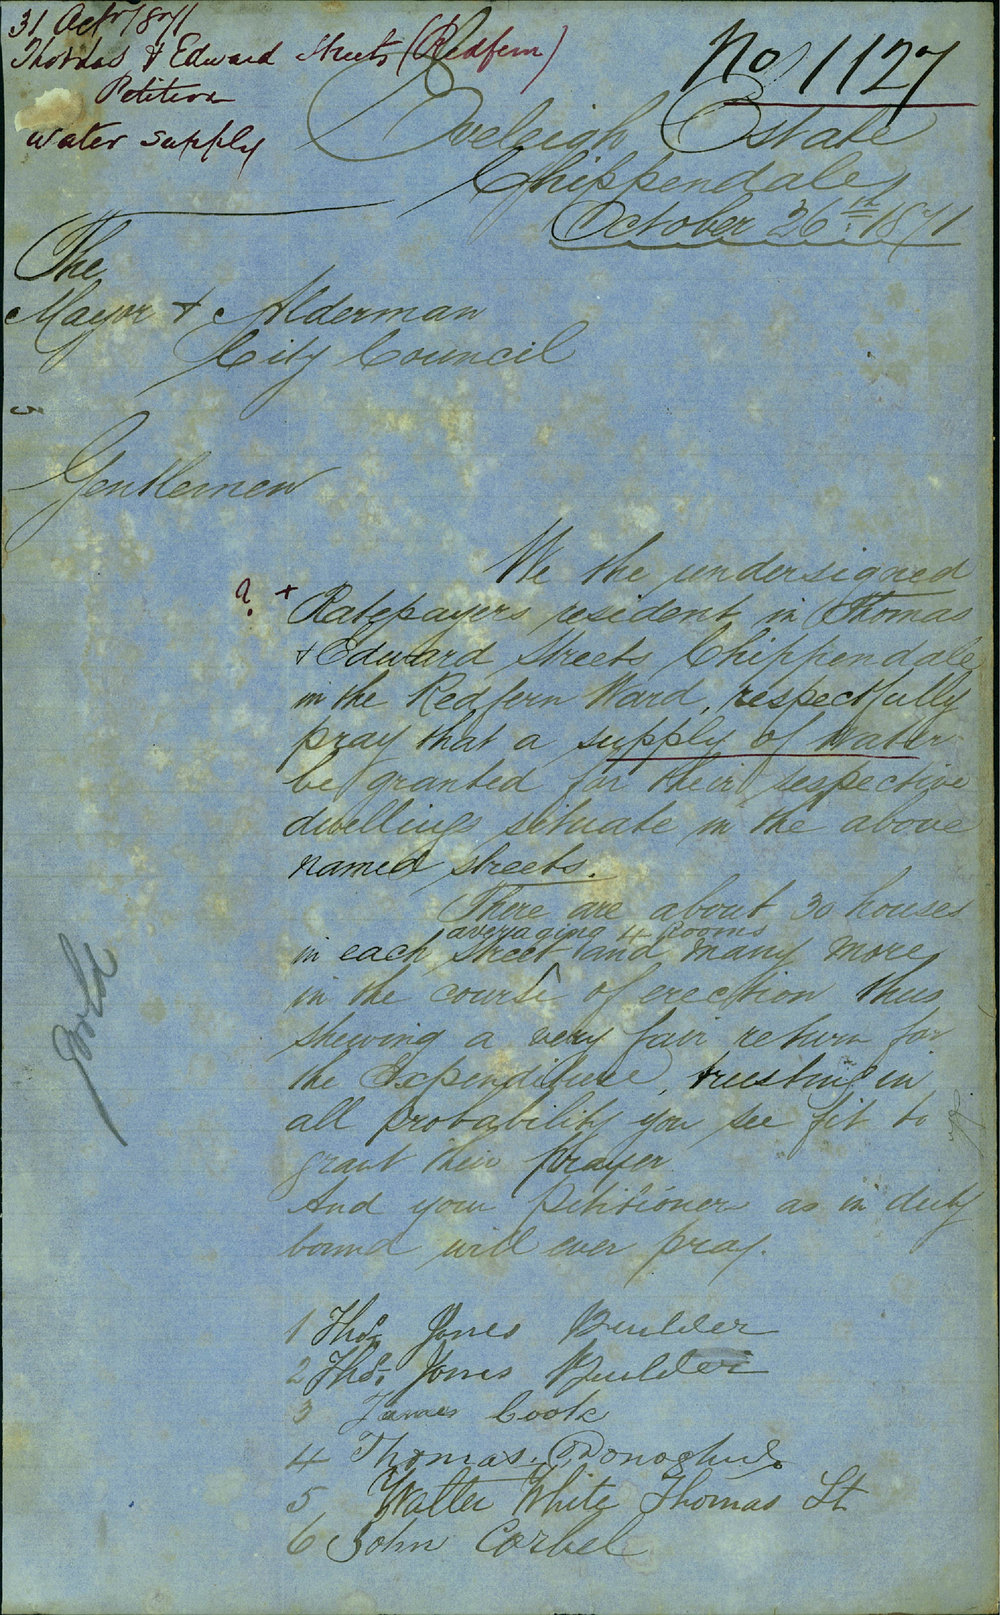 31 Octr 1871
Thomas & Edward Streets (Redfern)
Petition
water supply
No 1127
Eveleigh Estate
Chippendale,
October 26th 1871
The
Mayor & Alderman
City Council
Gentlemen
We the undersigned
? + Ratepayers resident in Thomas
& Edward Streets Chippendale
in the Redfern Ward, respectfully
pray that a supply of water
be granted for their respective
dwellings situate in the above
named streets.
There are about 30 houses
averaging 4 Rooms
in each street and many more
in the course of erection thus
shewing a very fair return for
the Expenditure, trusting in
all probability you see fit to
grant their prayer
And your Petitioner as in duty
bound will ever pray.
1 Thos. Jones Builder
2 Thos. Jones Builder
3 James Cook
4 Thomas O'Donoghue
5 Walter White Thomas St
6 John Corbel